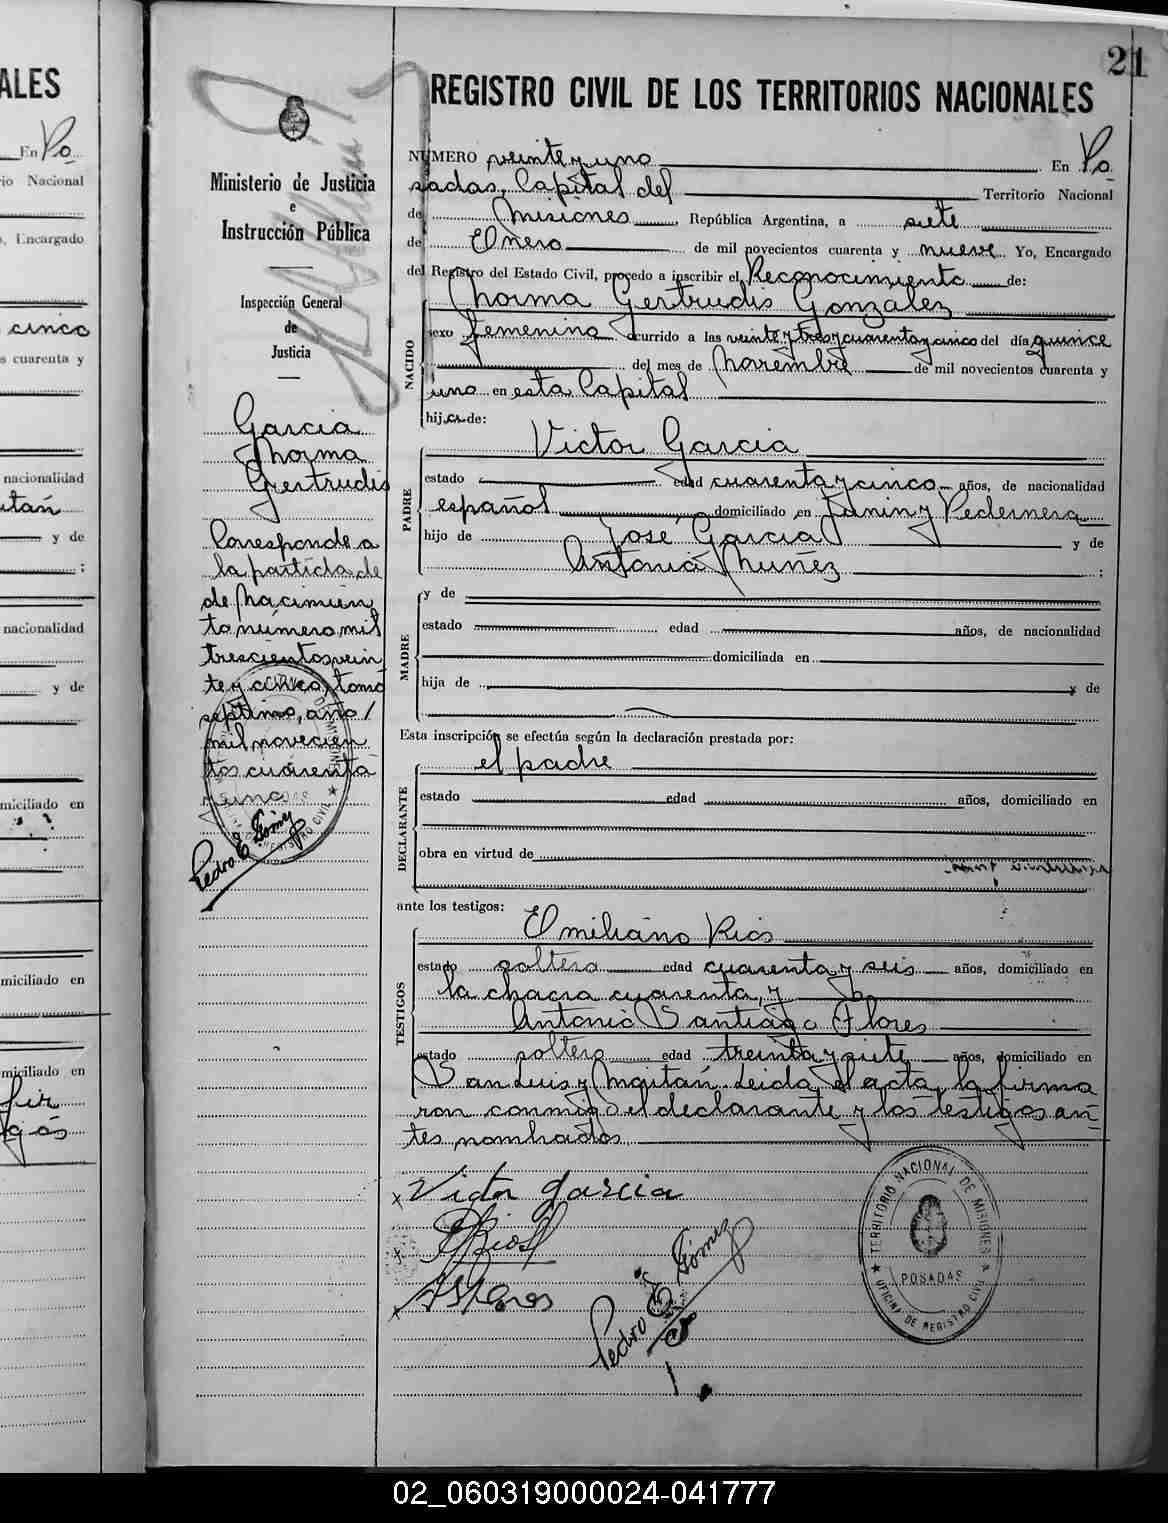 21
REGISTRO CIVIL DE LOS TERRITORIOS NACIONALES
NÚMERO veinte y uno En Po
sadas, Capital del Territorio Nacional
de Misiones, República Argentina, a siete
de Enero de mil novecientos cuarenta y nueve Yo, Encargado
del Registro del Estado Civil, procedo a inscribir el Reconocimiento de:
Norma Gertrudis Gonzalez
NACIDO
sexo femenino ocurrido a las veinte y tres y cuarenta y cinco del día quince
del mes de Noviembre de mil novecientos cuarenta y
uno en esta Capital
hija de:
Victor Garcia
PADRE
estado edad cuarenta y cinco años, de nacionalidad
español domiciliado en Junin y Pedernera
hijo de José Garcia y de
Antonia Nuñez ;
MADRE
y de
estado edad años, de nacionalidad
domiciliada en
hija de y de
Esta inscripción se efectúa según la declaración prestada por:
el padre
DECLARANTE
estado edad años, domiciliado en
obra en virtud de
ante los testigos:
Emiliano Rios
TESTIGOS
estado soltero edad cuarenta y seis años, domiciliado en
la chacra cuarenta, y
Antonio Santiago Flores
estado soltero edad treinta y siete años, domiciliado en
San Luis y Maitán. Leida el acta, la firma
ron conmigo el declarante y los testigos an
tes nombrados
x Victor Garcia
x ERios
x ASFlores
Pedro E Gómez
TERRITORIO NACIONAL DE MISIONES
POSADAS
OFICINA DE REGISTRO CIVIL
Ministerio de Justicia
e
Instrucción Pública
Inspección General
de
Justicia
Garcia
Norma
Gertrudis
Corresponde a
la partida de
de Nacimien
to número mil
trescientos vein
te y cinco, tomo
septimo, año
mil novecien
tos cuarenta
y uno
Pedro E Gómez
ALES
En Po
io Nacional
, Encargado
cinco
s cuarenta y
nacionalidad
itán
y de
;
nacionalidad
y de
miciliado en
miciliado en
miciliado en
fir
gos
02_060319000024-041777